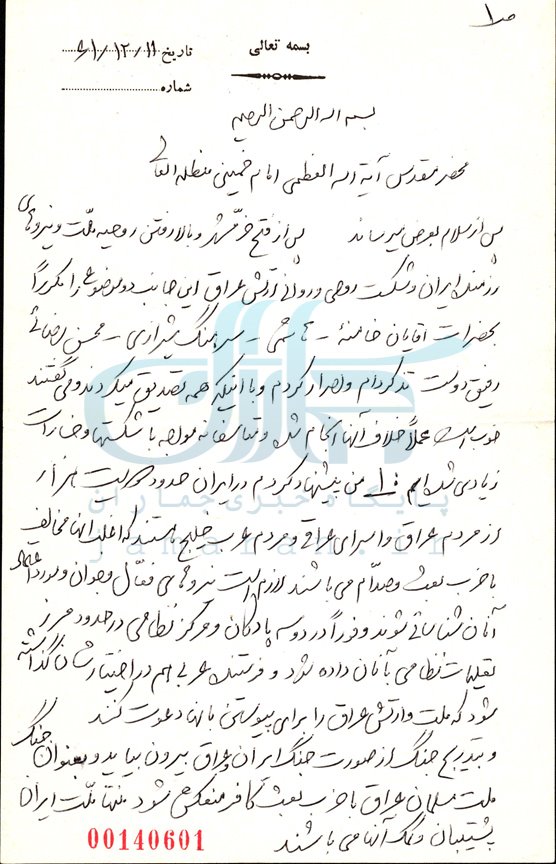 ص ۱
بسمه تعالی
تاریخ ۶۱/۱۲/۱۱
شماره
بسم الله الرحمن الرحیم
محضر مقدس آیة الله العظمی امام خمینی مدظله العالی
پس از سلام بعرض میرساند پس از فتح خرمشهر و بالا رفتن روحیه ملت و نیروهای
رزمنده ایران و شکست روحی و روانی ارتش عراق این جانب دو موضوع را مکرراً
بحضرات آقایان خامنه‌ - هاشمی - سرهنگ شیرازی - محسن رضائی
رفیق دوست تذکر دادم و اصرار کردم و با اینکه همه تصدیق میکردند و می گفتند
خوب است عملاً خلاف آنها انجام شد و متأسفانه مواجه با شکستها و خسارات
زیادی شده‌ایم ۱- من پیشنهاد کردم در ایران حدود هزار
از مردم عراق و اسرای عراقی و مردم عرب خلیج هستند که اغلب آنها مخالف
با حزب بعث و صدام می باشند لازم است نیروهای فعال و جوان و مورد اعتماد
آنان شناسائی شوند و فوراً در دو سه پادگان و مرکز نظامی در حدود مرز
تعلیمات نظامی بآنان داده شود و فرستنده عربی هم در اختیارشان گذاشته
شود که ملت و ارتش عراق را برای پیوستن بآنها دعوت کنند
و بتدریج جنگ از صورت جنگ ایران و عراق بیرون بیاید و بعنوان جنگ
ملت مسلمان عراق با حزب بعث کافر منعکس شود منتها ملت ایران
پشتیبان و کمک آنها می باشند
جماران
پایگاه خبری جماران
jamaran.ir
00140601